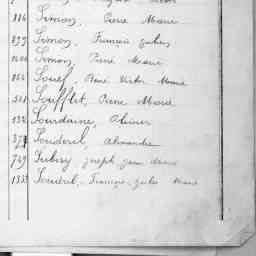 886 Simon, Pierre Marie
899 Simon, François Jules
1000 Simon, Pierre Marie
864 Souef, René Victor Marie
581 Soufflet, Pierre Marie
132 Sourdaine, Olivier
371 Souderil, Alexandre
749 Subiry Joseph Jean Marie
1333 Soudril, François Jules Marie